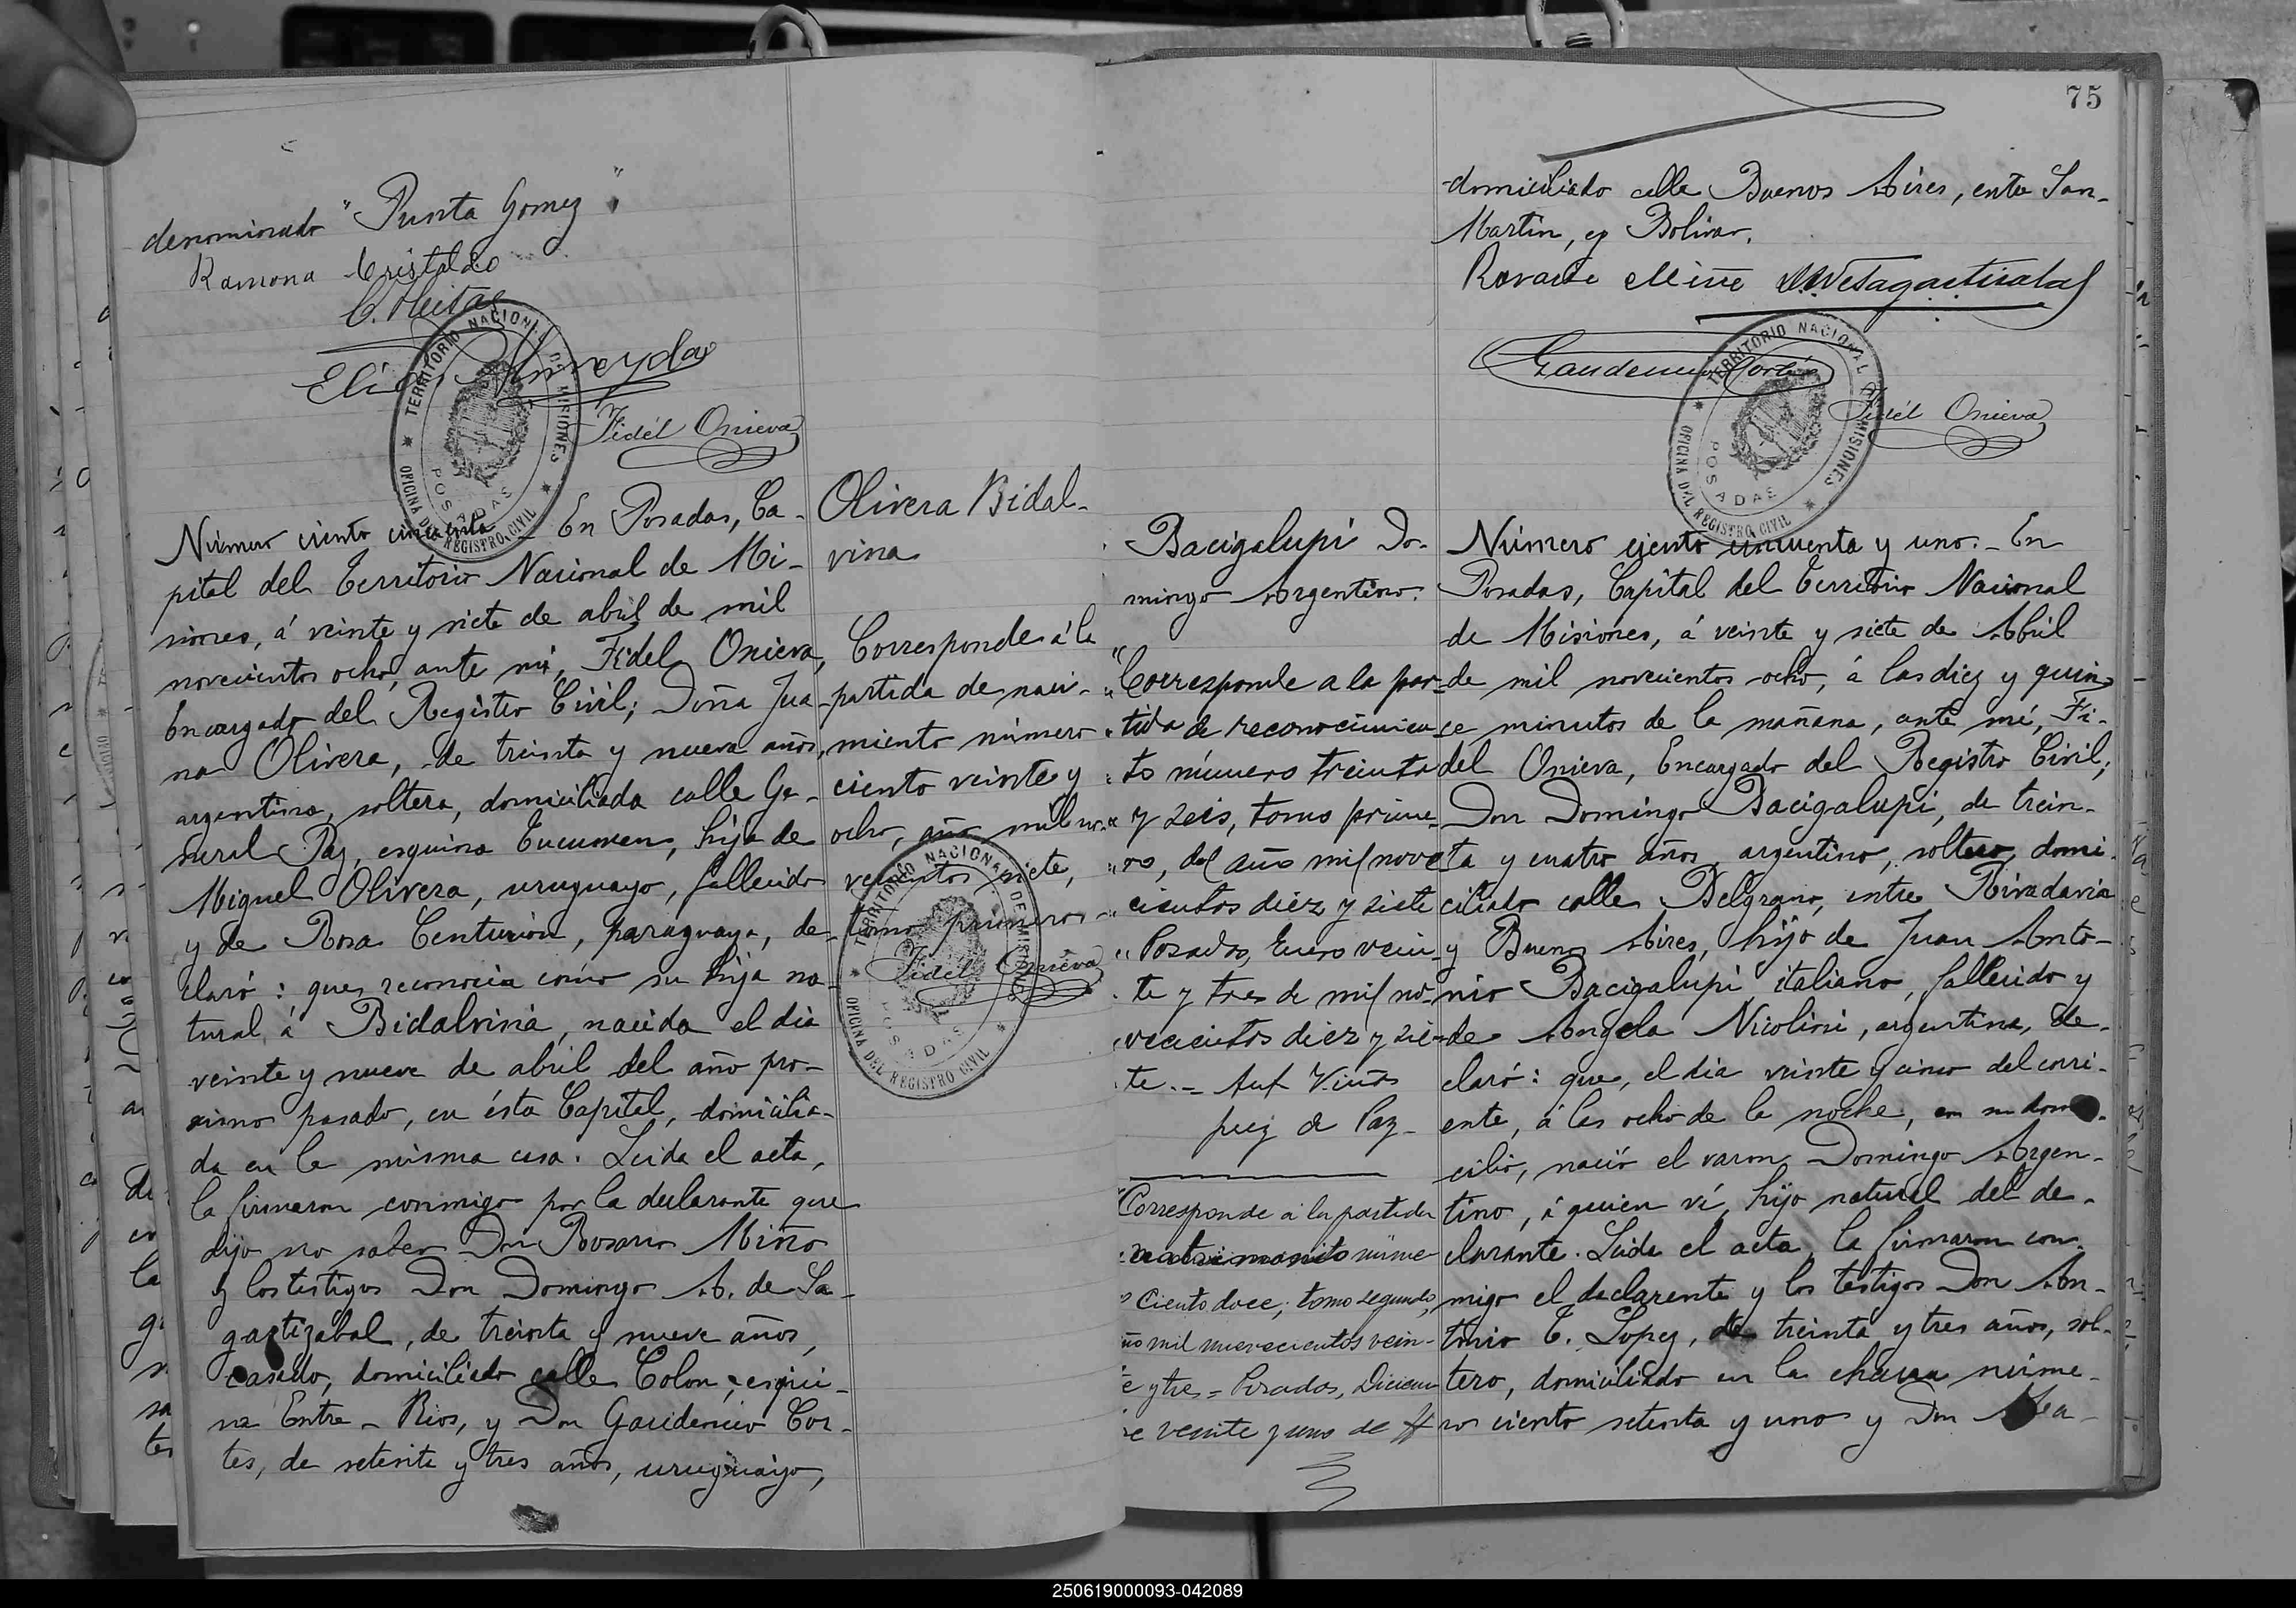 denominado "Punta Gomez".
Ramona Cristaldo
Fidél Onieva
TERRITORIO NACIONAL DE MISIONES
POSADAS
OFICINA DEL REGISTRO CIVIL
Número ciento cincuenta - En Posadas, Ca-
pital del Territorio Nacional de Mi-
siones, á veinte y siete de abril de mil
novecientos ocho, ante mi, Fidel Onieva,
Encargado del Registro Civil; Doña Jua-
na Olivera, de treinta y nueve años,
argentina, soltera, domiciliada calle Ge-
neral Paz, esquina Tucuman, hija de
Miguel Olivera, uruguayo, fallecido
y de Rosa Centurión, paraguaya, de-
claró: que, reconocia como su hija na-
tural á Bidalvina, nacida el dia
veinte y nueve de abril del año pro-
ximo pasado, en ésta Capital, domicilia-
da en la misma casa. Leida el acta,
la firmaron conmigo por la declarante que
dijo no saber Don Rosario Miño
y los testigos Don Domingo A. de Sa-
gastizabal, de treinta y nueve años,
casado, domiciliado calle Colon, esqui-
na Entre-Rios, y Don Gaudencio Cor-
tes, de setenta y tres años, uruguayo,
Olivera Bidal-
vina
Corresponde á la
partida de naci-
miento número
ciento veinte y
ocho, año mil no-
vecientos siete,
tomo primero.-
Fidél Onieva
TERRITORIO NACIONAL DE MISIONES
POSADAS
OFICINA DEL REGISTRO CIVIL
75
domiciliado calle Buenos Aires, entre San-
Martin, y Bolivar.
Fidél Onieva
TERRITORIO NACIONAL DE MISIONES
POSADAS
OFICINA DEL REGISTRO CIVIL
Bacigalupi Do-
mingo Argentino.
"Corresponde a la par-
"tida de reconocimien-
"to número treinta
"y seis, tomo prime-
"ro, del año mil nove-
"cientos diez y siete
"Posadas, Enero vein-
"te y tres de mil no-
"vecientos diez y sie-
"te.-
Juez de Paz-
Corresponde a la partida
matrimonio núme-
ro ciento doce; tomo segundo,
año mil nuevecientos vein-
te y tres = Posadas, Diciem-
bre veinte y uno de
Número ciento cincuenta y uno.- En
Posadas, Capital del Territorio Nacional
de Misiones, á veinte y siete de Abril
de mil novecientos ocho, á las diez y quin-
ce minutos de la mañana, ante mi, Fi-
del Onieva, Encargado del Registro Civil;
Don Domingo Bacigalupi, de trein-
ta y cuatro años, argentino, soltero, domi-
ciliado calle Belgrano, entre Rivadavia
y Buenos Aires, hijo de Juan Anto-
nio Bacigalupi italiano, fallecido y
de Angela Nicolini, argentina, de-
claró: que, el dia veinte y cinco del corri-
ente, á las ocho de la noche, en su domi-
cilio, nació el varon Domingo Argen-
tino, á quien ví, hijo natural del de-
clarante. Leida el acta, la firmaron con-
migo el declarante y los testigos Don An-
tonio T. Lopez, de treinta y tres años, sol-
tero, domiciliado en la chacra núme-
ro ciento setenta y uno y Don
250619000093-042089